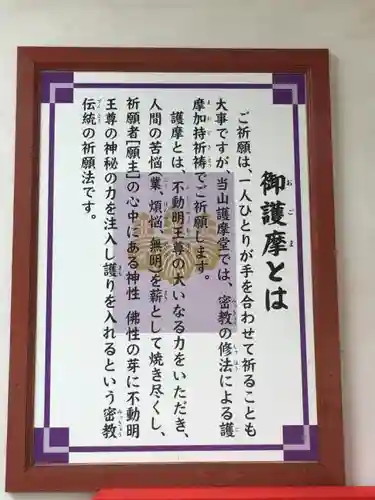 御護摩とは
ご祈願は、一人ひとりが手を合わせて祈ることも
大事ですが、当山護摩堂では、密教の修法による護
摩加持祈祷でご祈願します。
護摩とは、不動明王尊の大いなる力をいただき、
人間の苦悩(業、煩悩、無明)を薪として焼き尽くし、
祈願者[願主]の心中にある神性 佛性の芽に不動明
王尊の神秘の力を注入し護りを入れるという密教
伝統の祈願法です。